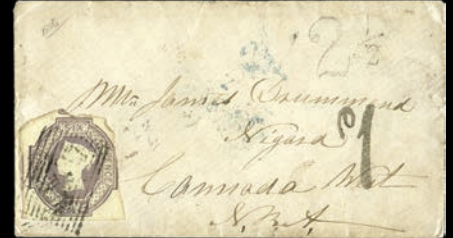 2½
Mr James Drummond
Nigara
Cannada West
N.B.A.
1